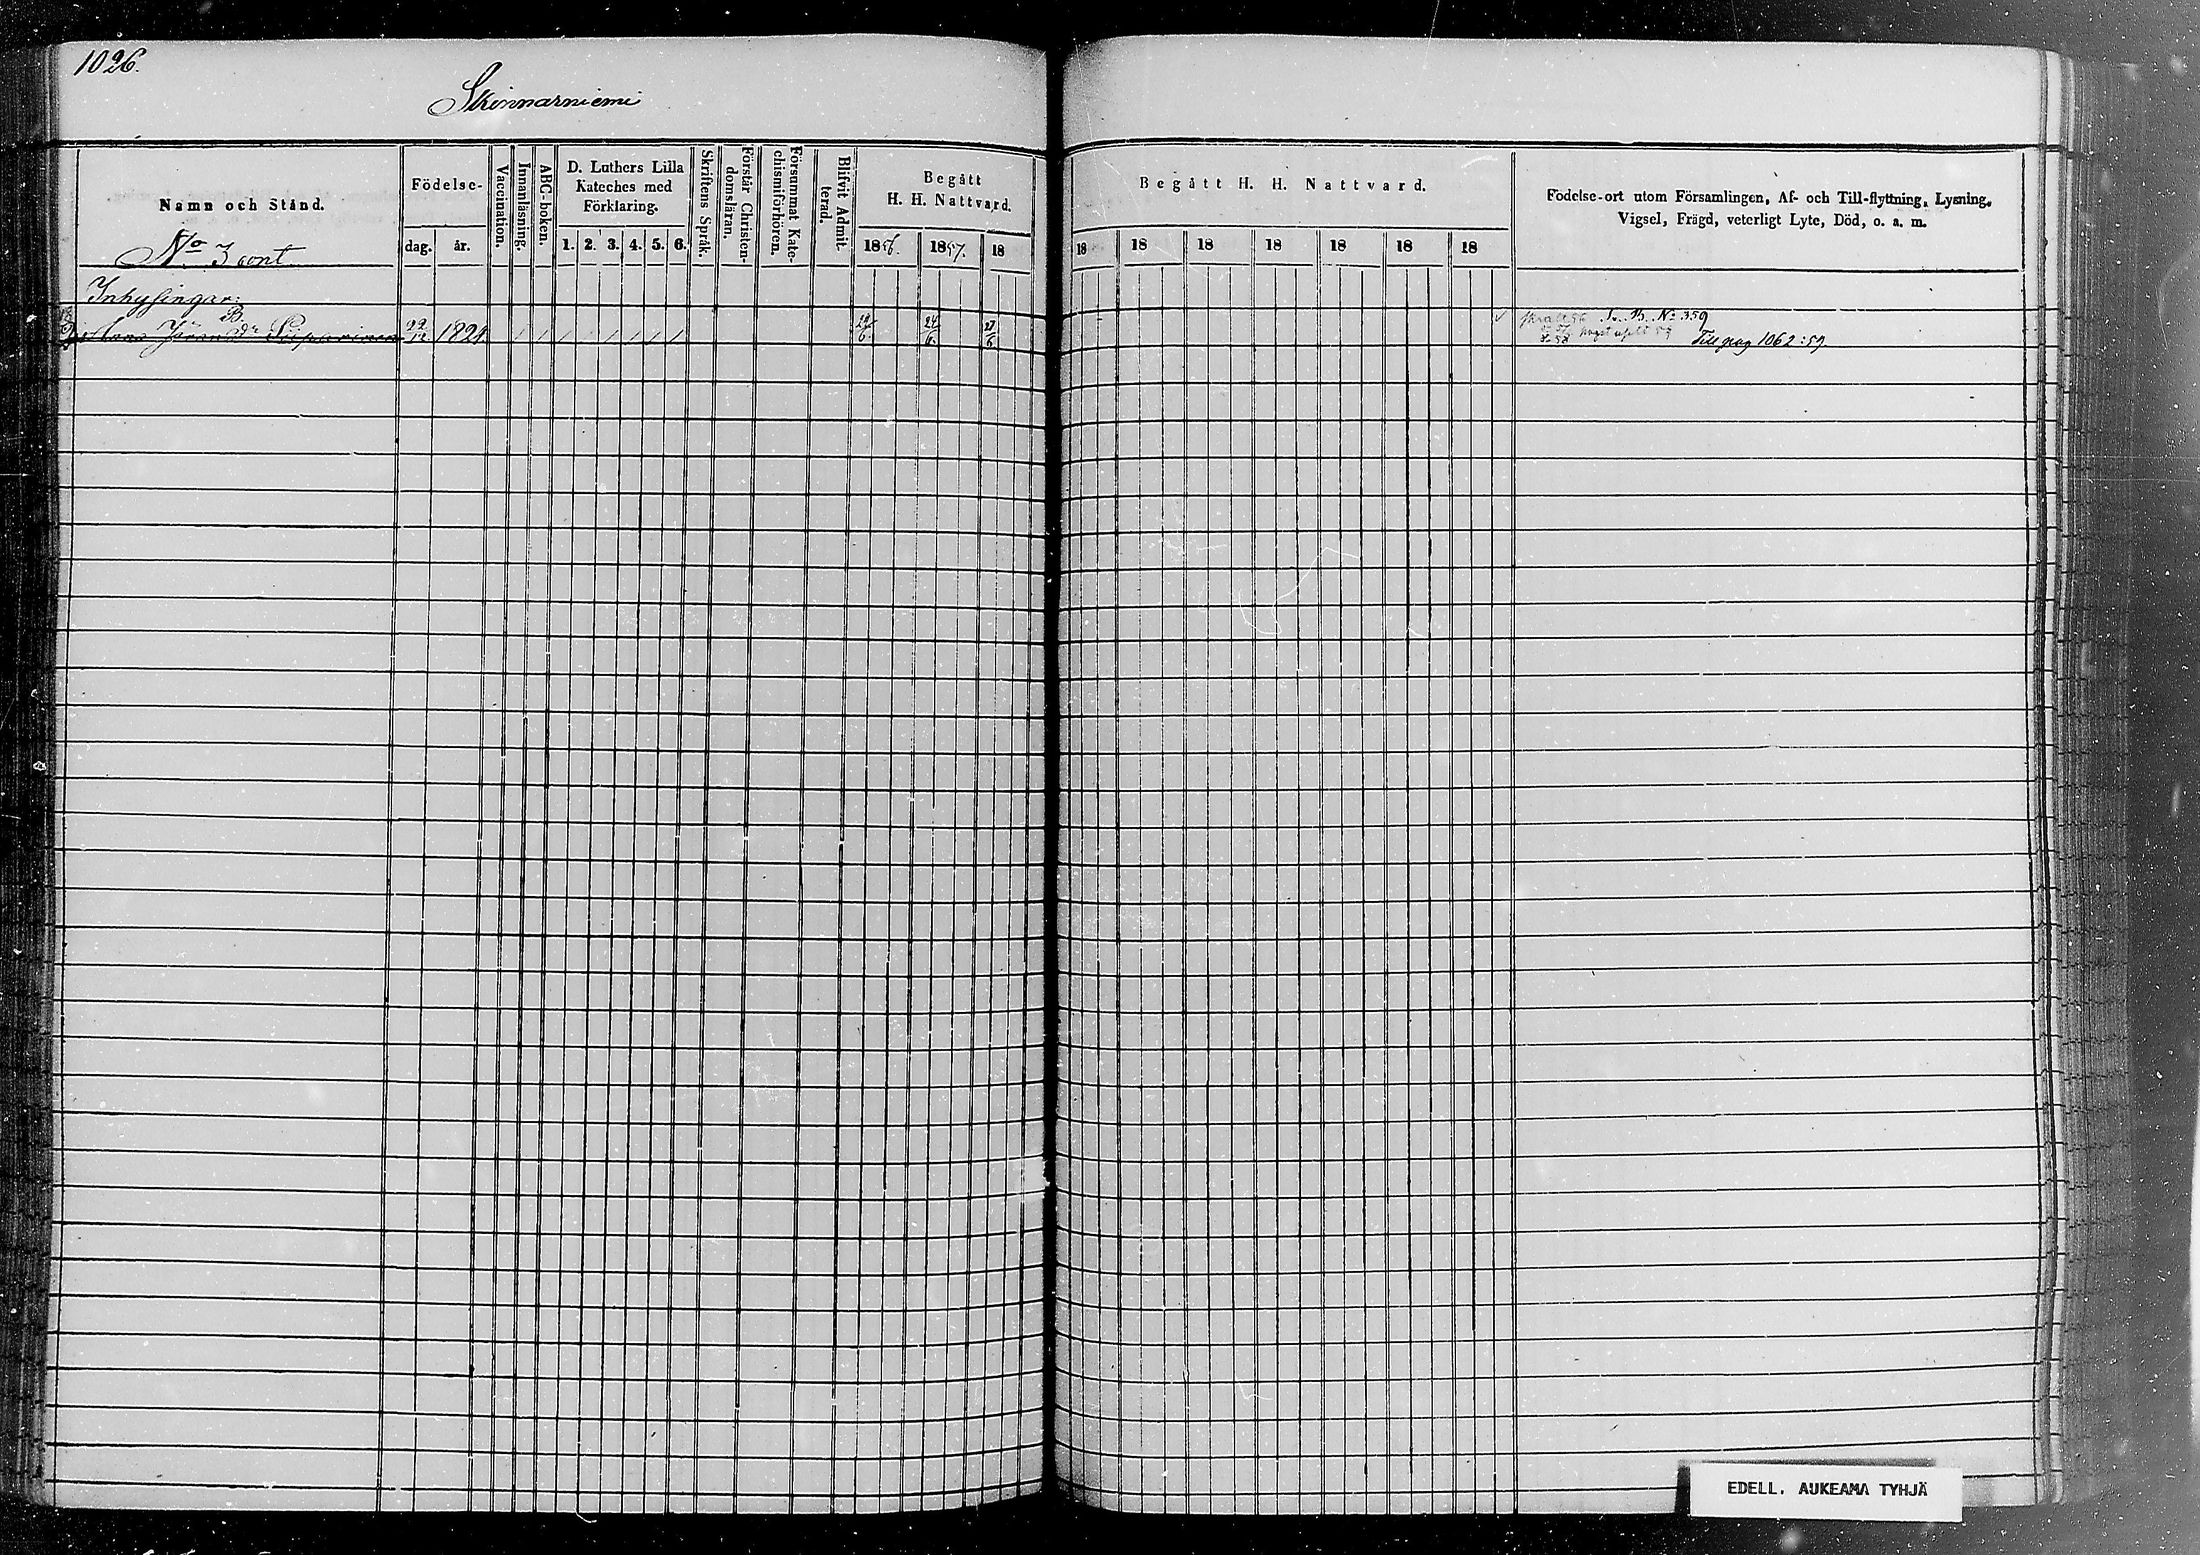 1026.
Skinnarniemi
Namn och Stånd.
Födelse-
dag. år.
Vaccination.
Innanläsning.
ABC-boken.
D. Luthers Lilla
Kateches med
Förklaring.
1. 2. 3. 4. 5. 6.
Skriftens Språk.
Förstår Christen-
domsläran.
Försummat Kate-
chismiförhören.
Blifvit Admit-
terad.
Begått
H. H. Nattvard.
1856. 1857. 18
Begått H. H. Nattvard.
18 18 18 18 18 18 18
Födelse-ort utom Församlingen, Af- och Till-flyttning, Lysning,
Vigsel, Frägd, veterligt Lyte, Död, o. a. m.
No 3 cont
Inhysingar:
B.
Jöran Dr 22/12 1824 24/6 27/6
No 359
Till pag 1062:59.
EDELL. AUKEAMA TYHJÄ